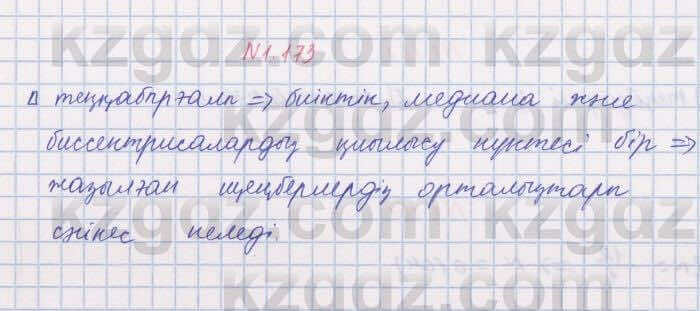 kzgdz.com kzgdz.com
N1.173
Δ теңқабырғалы => биіктік, медиана және
биссектрисалардың қиылысу нүктесі бір =>
жазылған шеңберлердің орталықтары
сәйкес келеді
kzgdz.com kzgdz.com